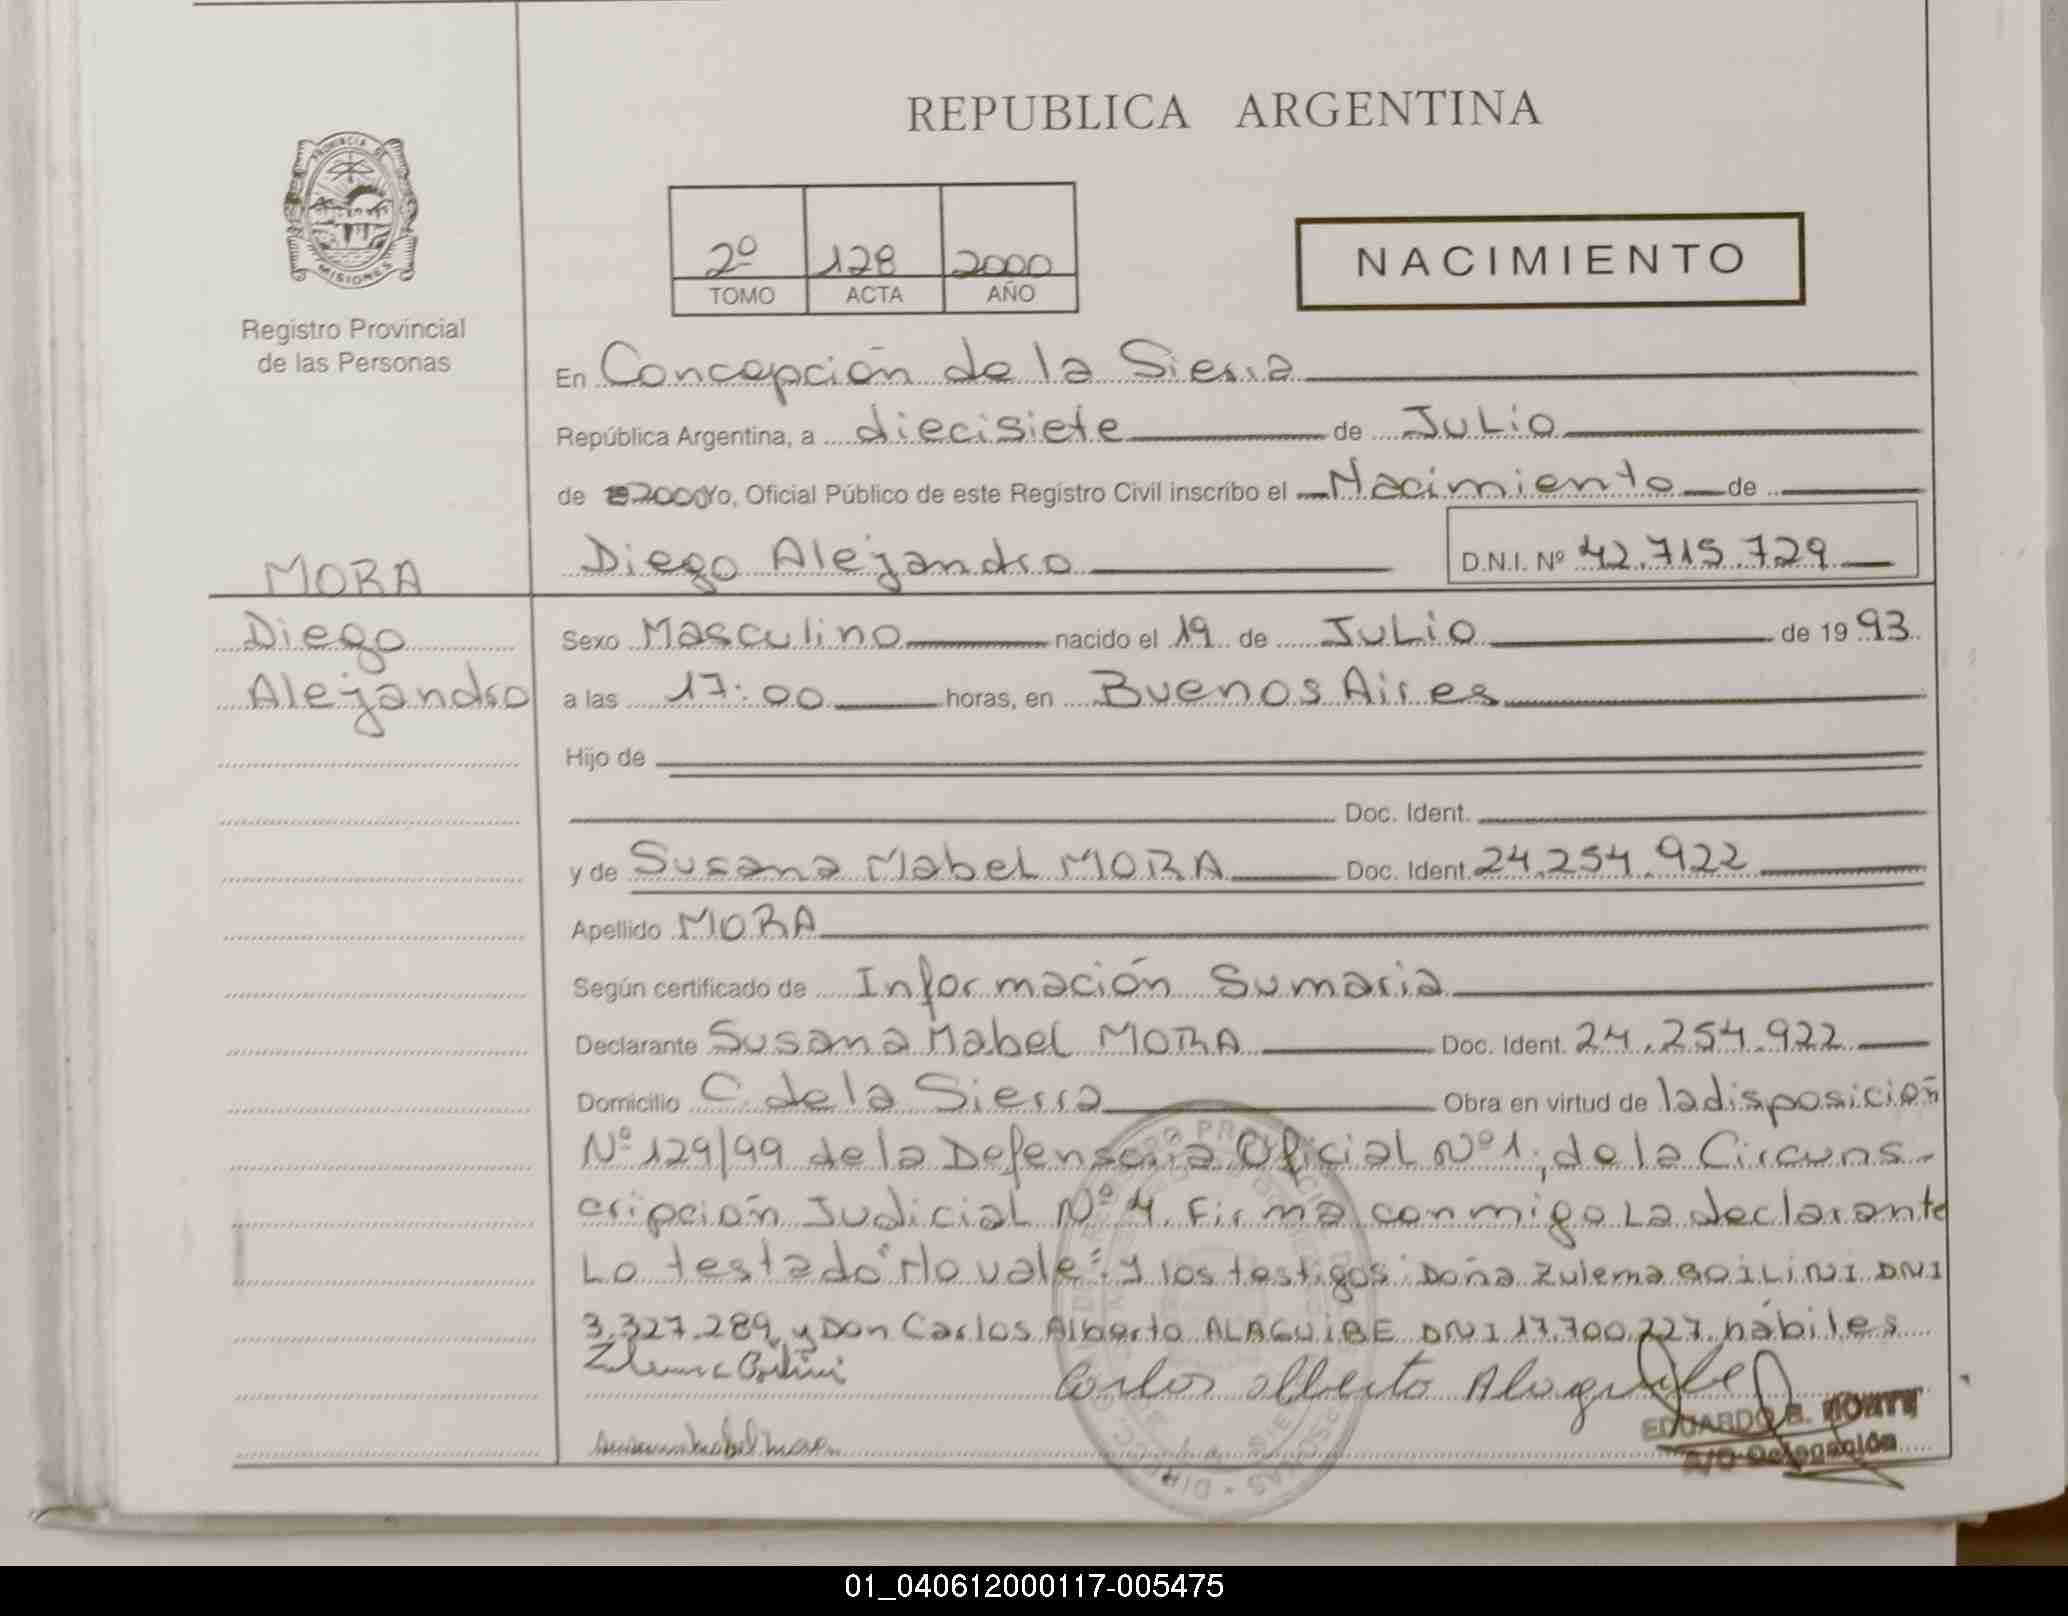 REPUBLICA ARGENTINA
PROVINCIA DE
MISIONES
Registro Provincial
de las Personas
2º 128 2000
TOMO ACTA AÑO
NACIMIENTO
En Concepción de la Sierra
República Argentina, a diecisiete de Julio
de 2000 Yo, Oficial Público de este Registro Civil inscribo el Nacimiento de
Diego Alejandro D.N.I. Nº 42.715.729
MORA
Diego
Alejandro
Sexo Masculino nacido el 19 de Julio de 1993
a las 17:00 horas, en Buenos Aires
Hijo de
Doc. Ident.
y de Susana Mabel MORA Doc. Ident. 24.254.922
Apellido MORA
Según certificado de Información Sumaria
Declarante Susana Mabel MORA Doc. Ident. 24.254.922
Domicilio C. de la Sierra Obra en virtud de la disposición
Nº 129/99 de la Defensoria Oficial Nº 1, de la Circuns-
cripción Judicial Nº 4. Firma conmigo La declarante
Lo testado "No vale". y los testigos Doña Zulema BOILINI DNI
3.327.289 y Don Carlos Alberto ALAGUIBE DNI 17.700.227 hábiles
Carlos Alberto Alaguibe
EDUARDO B.
A/C Delegación
01_040612000117-005475